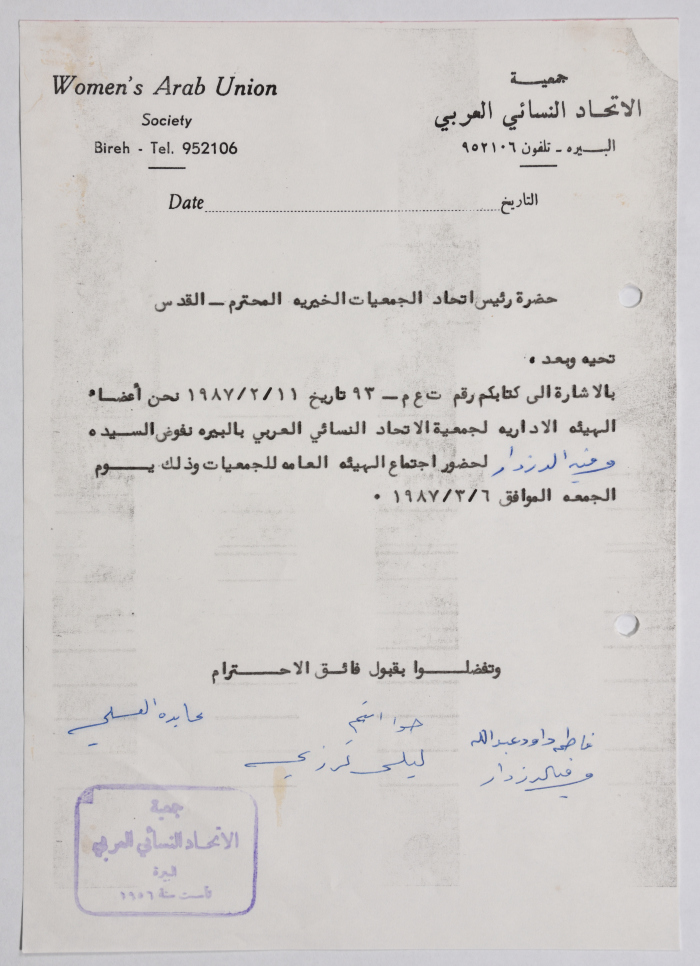 Women's Arab Union
Society
Bireh - Tel. 952106
جمعية
الاتحاد النسائي العربي
البيره - تلفون ٩٥٢١٠٦
Date ........ التاريخ
حضرة رئيس اتحاد الجمعيات الخيريه المحترم — القدس
تحيه وبعد ٠
بالاشارة الى كتابكم رقم ت ع م — ٩٣ تاريخ ١٩٨٧/٢/١١ نحن أعضاء
الهيئه الاداريه لجمعية الاتحاد النسائي العربي بالبيره نفوض السيده
وفيه الدزدار لحضور اجتماع الهيئه العامه للجمعيات وذلك يوم
الجمعه الموافق ١٩٨٧/٣/٦ ٠
وتفضلوا بقبول فائق الاحترام
فاطمه داود عبدالله
حوا
عابده العسلي
ليلى كرزي
الدزدار
جمعية
الاتحاد النسائي العربي
البيرة
تأسست سنة ١٩٥٦